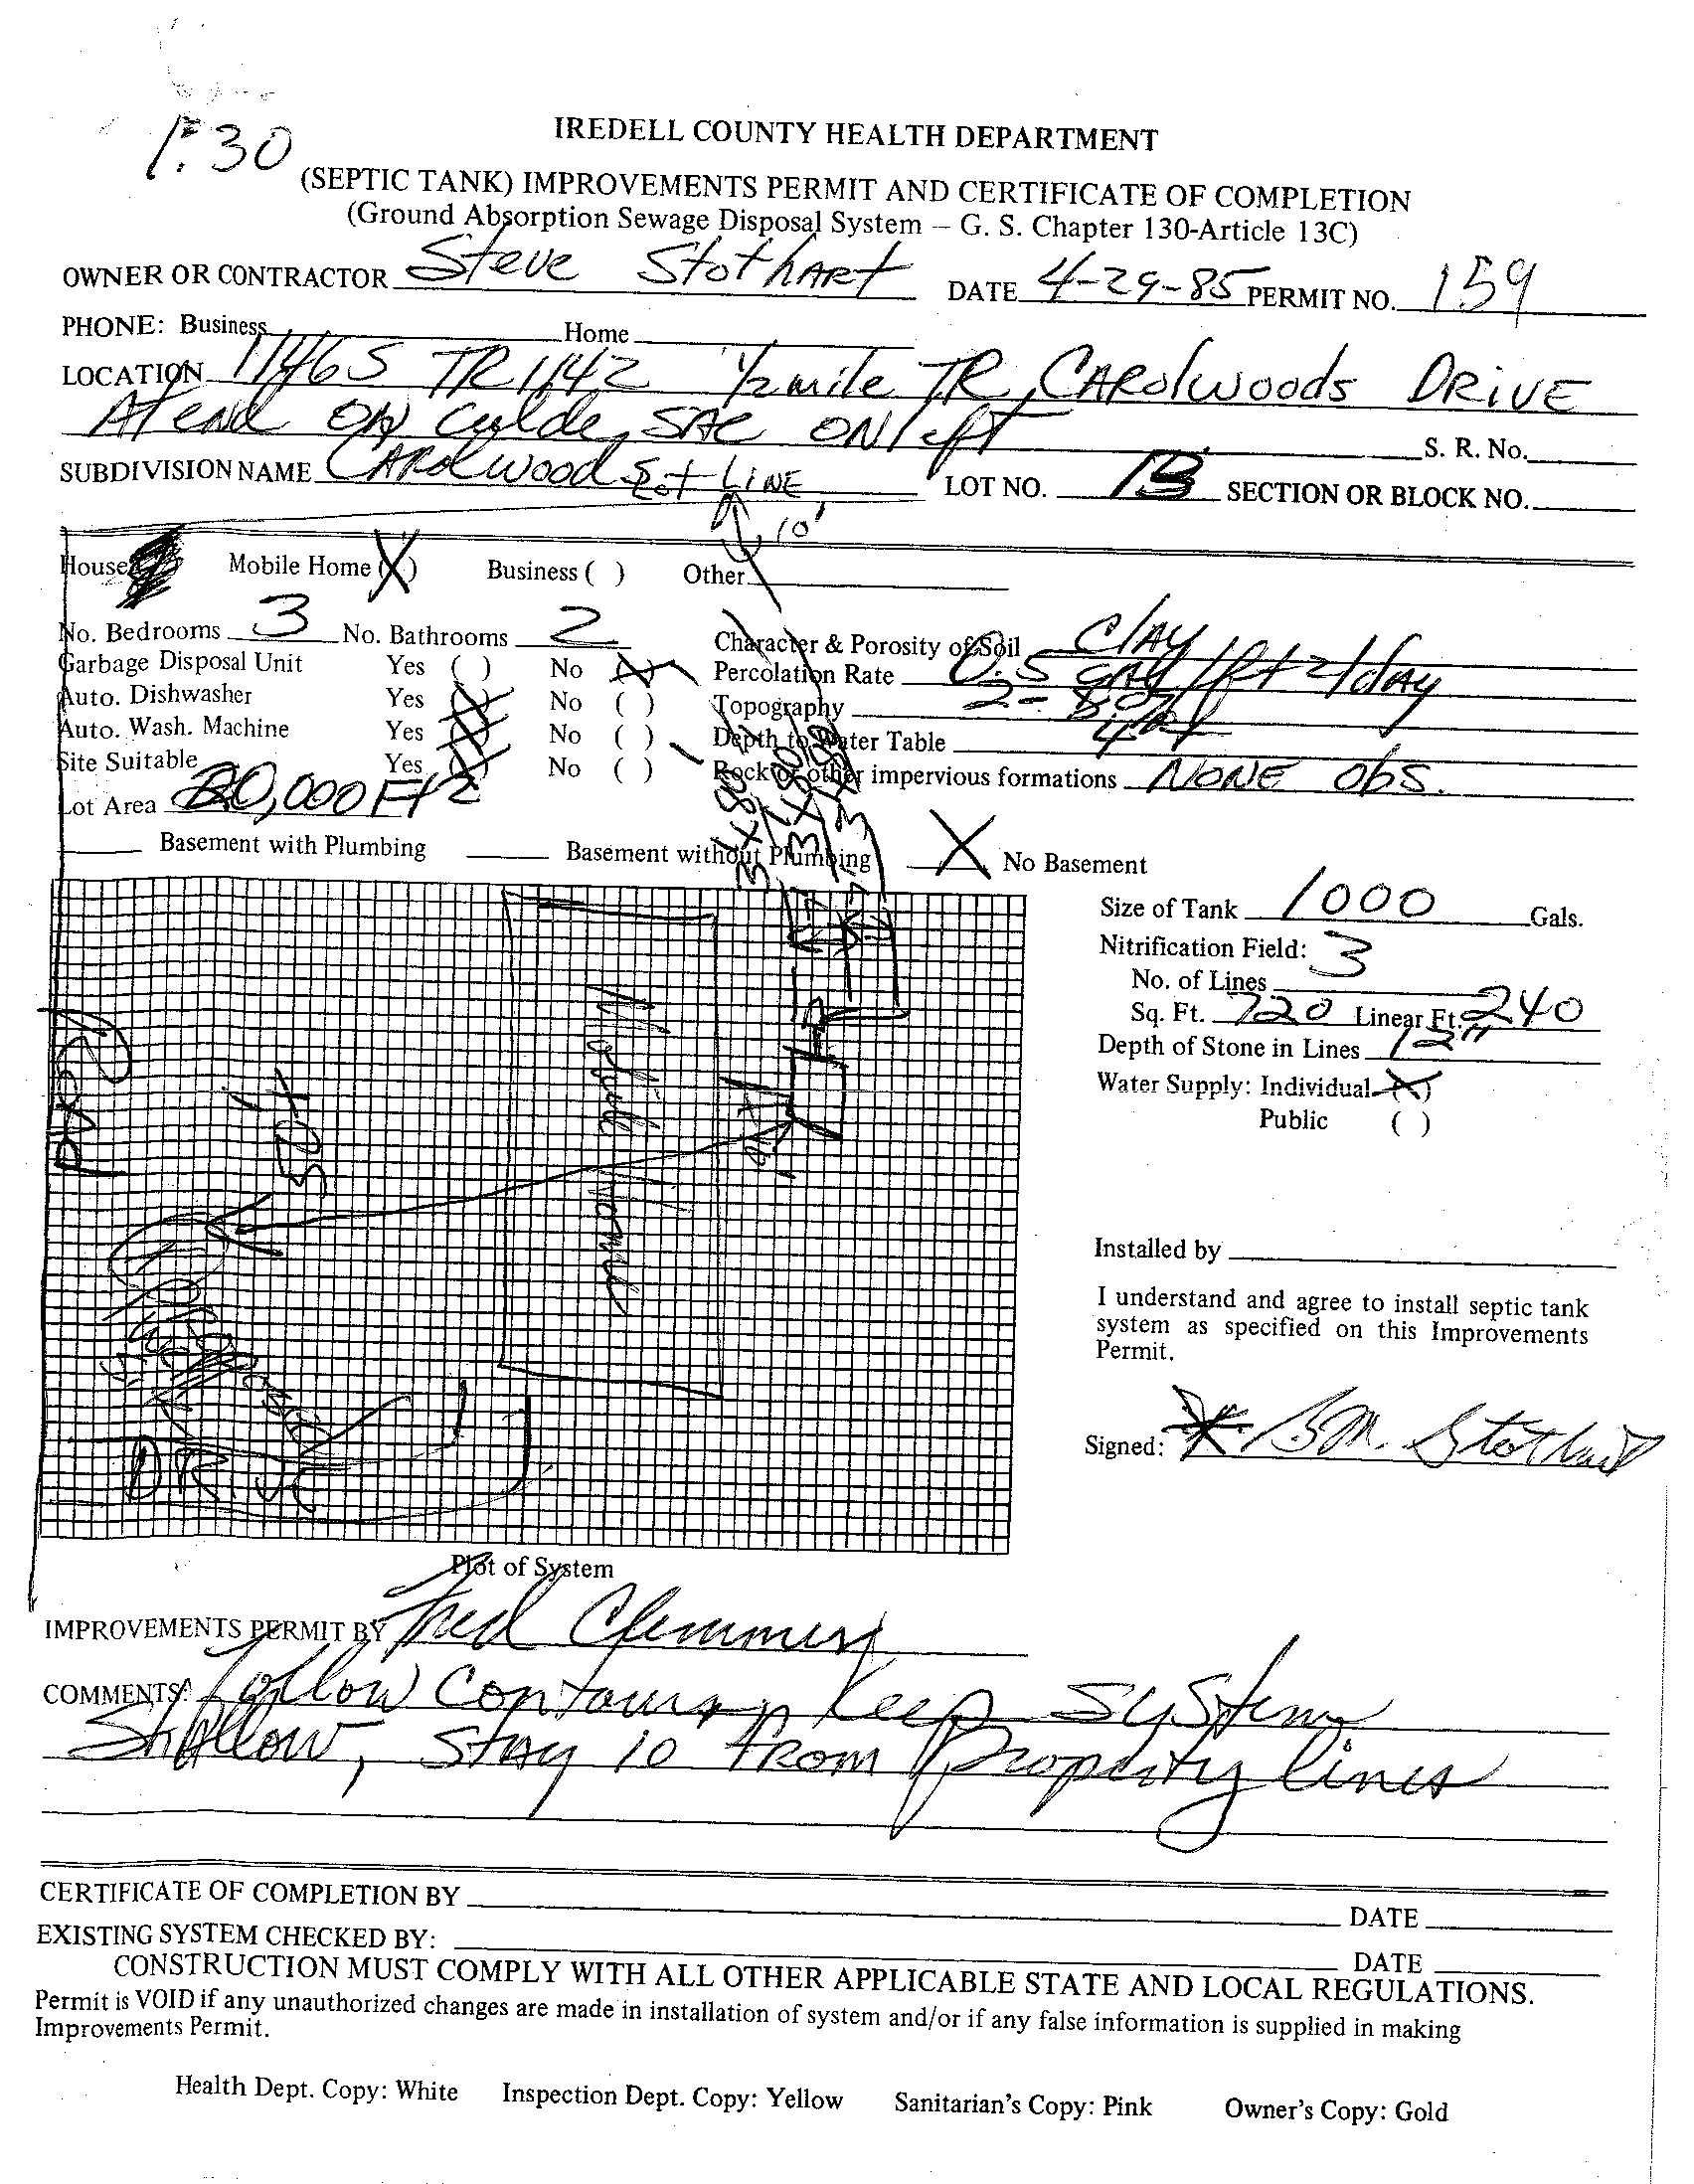 1:30
IREDELL COUNTY HEALTH DEPARTMENT
(SEPTIC TANK) IMPROVEMENTS PERMIT AND CERTIFICATE OF COMPLETION
(Ground Absorption Sewage Disposal System – G. S. Chapter 130-Article 13C)
OWNER OR CONTRACTOR Steve Stothart DATE 4-29-85 PERMIT NO. 159
PHONE: Business Home
LOCATION TR 1142 1/2 mile TR CAROlwoods DRIVE
At end culde SAC ON left S. R. No.
SUBDIVISION NAME CAROlwoods Lot LINE LOT NO. SECTION OR BLOCK NO.
10'
House Mobile Home (X) Business ( ) Other
No. Bedrooms 3 No. Bathrooms 2 Character & Porosity of Soil ClAY
Garbage Disposal Unit Yes ( ) No (X) Percolation Rate 0.5 gal/ft2/day
Auto. Dishwasher Yes (X) No ( ) Topography 2-8%
Auto. Wash. Machine Yes (X) No ( ) Depth to Water Table
Site Suitable Yes (X) No ( ) Rock or other impervious formations NONE Obs.
Lot Area 20,000 Ft2
Basement with Plumbing Basement without Plumbing X No Basement
3x80
3x80
3x80
Size of Tank 1000 Gals.
Nitrification Field:
No. of Lines 3
Sq. Ft. 720 Linear Ft. 240
Depth of Stone in Lines 12"
Water Supply: Individual (X)
Public ( )
Road
50+
Mobile Home
DRIVE
Installed by
I understand and agree to install septic tank
system as specified on this Improvements
Permit.
Signed: X B.M. Stothart
Plot of System
IMPROVEMENTS PERMIT BY Fred Clemmer
COMMENTS: Follow Contours, Keep System
Shallow, Stay 10 FROM Property lines
CERTIFICATE OF COMPLETION BY DATE
EXISTING SYSTEM CHECKED BY: DATE
CONSTRUCTION MUST COMPLY WITH ALL OTHER APPLICABLE STATE AND LOCAL REGULATIONS.
Permit is VOID if any unauthorized changes are made in installation of system and/or if any false information is supplied in making
Improvements Permit.
Health Dept. Copy: White Inspection Dept. Copy: Yellow Sanitarian's Copy: Pink Owner's Copy: Gold